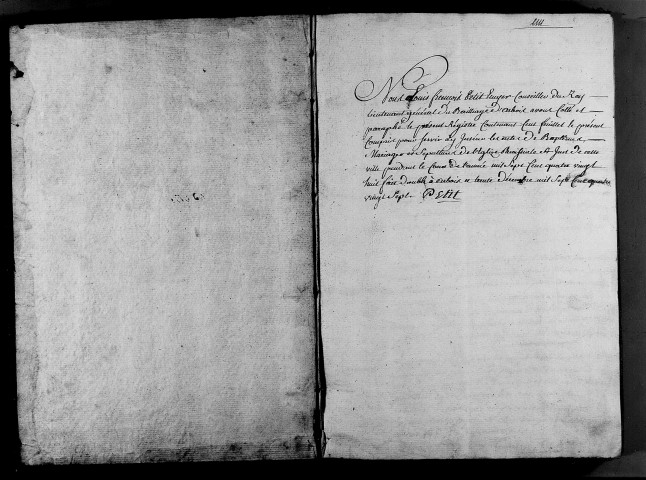 Nous Louis François Petit Ecuyer Conseiller du Roy
lieutenant général du Bailliage d'arbois avons Cotté et
paraphé le présent Registre Contenant Cent feuillet le présent
Compris pour servir a y Inscrire les actes de Baptêmes
Mariages et Sepultures de l'église Paroissiale St Just de cette
ville pendant le Cours de l'année mil Sept Cent quatre vingt
huit fait double à arbois ce trente décembre mil Sept Cent quatre
vingt Sept. Petit